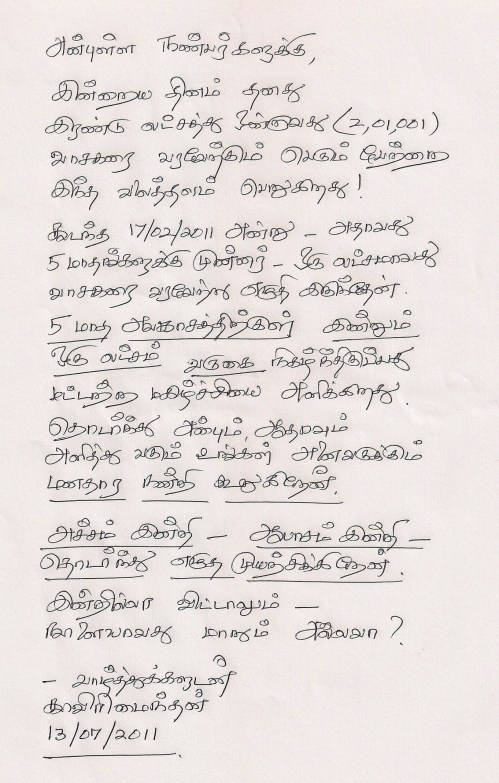 அன்புள்ள நண்பர்களுக்கு,
இன்றைய தினம் தனது
இரண்டு லட்சத்து ஒன்றாவது (2,01,001)
வாசகரை வரவேற்கும் பெரும் பேற்றை
இந்த வலைத்தளம் பெறுகிறது!
கடந்த 17/02/2011 அன்று - அதாவது
5 மாதங்களுக்கு முன்னர் - ஒரு லட்சமாவது
வாசகரை வரவேற்று எழுதி இருந்தேன்.
5 மாத அவகாசத்திற்குள் இன்னும்
ஒரு லட்சம் வருகை நிகழ்ந்திருப்பது
மட்டற்ற மகிழ்ச்சியை அளிக்கிறது.
தொடர்ந்து அன்பும், ஆதரவும்
அளித்து வரும் உங்கள் அனைவருக்கும்
மனதார நன்றி கூறுகிறேன்.
அச்சம் இன்றி - ஆபாசம் இன்றி -
தொடர்ந்து எழுத முயற்சிக்கிறேன்.
இன்றில்லா விட்டாலும் -
நாளையாவது மாறும் அல்லவா?
- வாழ்த்துக்களுடன்
காவிரிமைந்தன்
13/07/2011